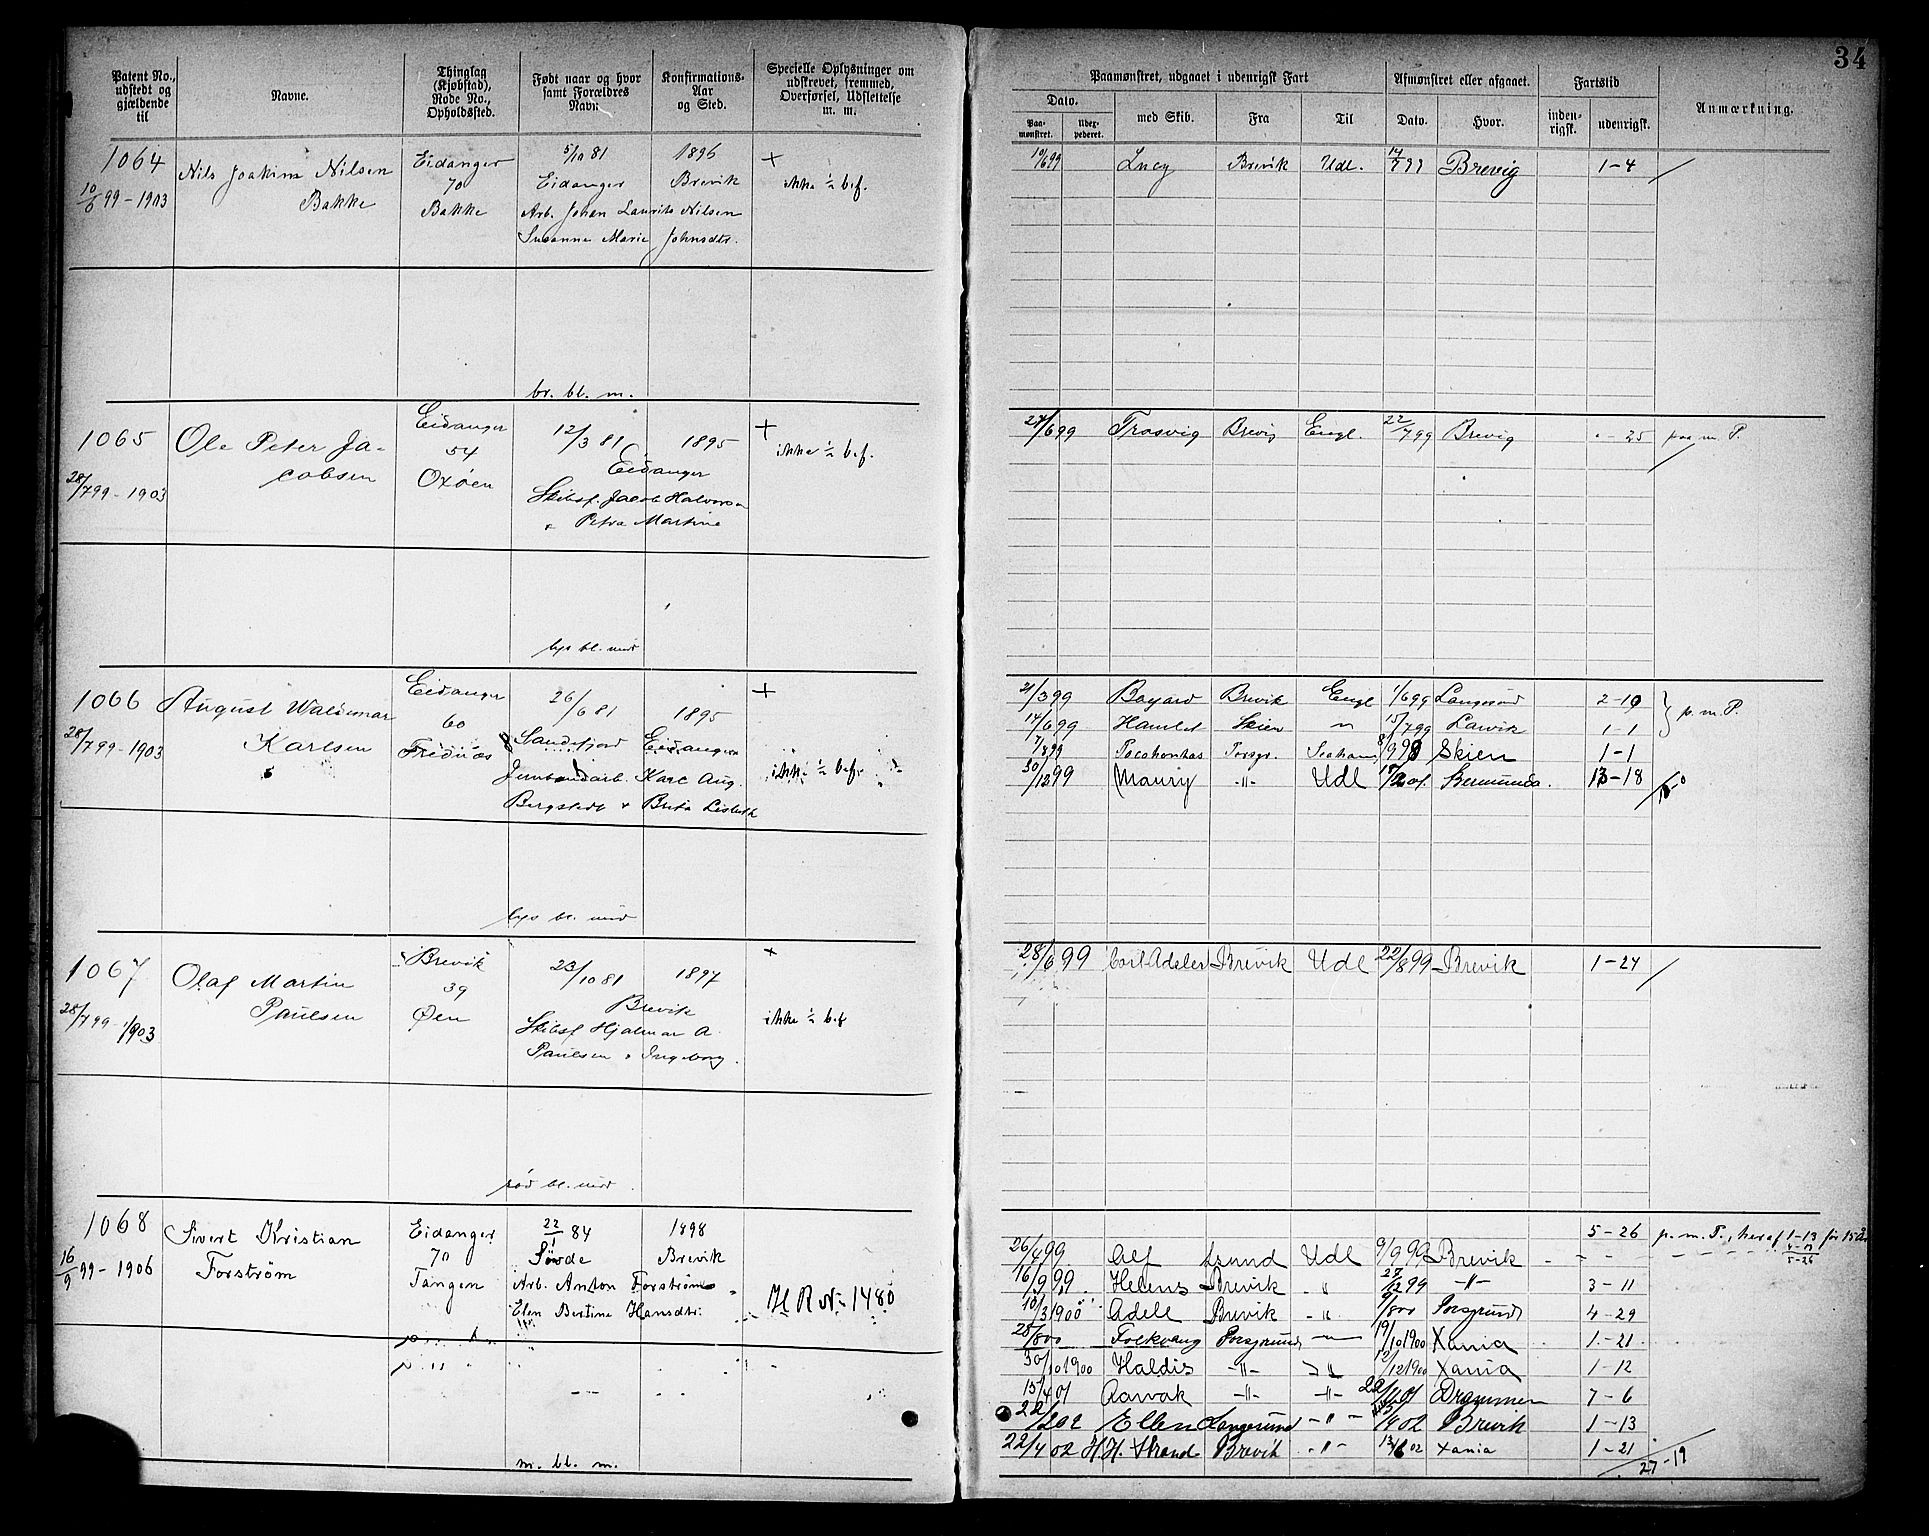 34
Patent No., udstedt og gjældende til
Navne.
Thinglag (Kjøbstad), Rode No., Opholdssted.
Født naar og hvor samt Forældres Navn
Konfirmations-Aar og Sted.
Specielle Oplysninger om udskrevet, fremmed, Overførsel, Udslettelse m. m.
Paamønstret, udgaaet i udenrigsk Fart
Afmønstret eller afgaaet.
Fartstid
Anmærkning.
Dato.
Paa-mønstret.
Udex-pederet.
med Skib.
Fra
Til
Dato.
Hvor.
inden-rigsk.
udenrigsk.
1064 Nils Joakim Nilsen Eidanger 5/10 81 1896 +
10/6 99-1903 Bakke 70 Eidanger Brevik ikke ½ bef.
Bakke Arb. Johan Laurits Nilsen
Susanne Marie Johnsdtr.
br. bl. m.
10/6 99 Lucy Brevik Udl. 14/7 99 Brevig 1-4
1065 Ole Peter Ja- Eidanger 12/3 81 1895 +
28/7 99-1903 cobsen 54 Eidanger ikke ½ bef.
Oxøen Skibsf. Jacob Halvorsen
+ Petra Martine
lys bl. mid
27/6 99 Trosvig Brevig Engl. 22/7 99 Brevig - 25 paa m. P.
1066 August Waldemar Eidanger 26/6 81 1895 +
28/7 99-1903 Karlsen 60 Sandefjord Eidanger
Fridnæs Jernbandarb. Karl Aug. ikke ½ bef.
Bergstedt + Brita Lisbeth
lys bl. mid
21/3 99 Bayard Brevik Engl 1/6 99 Langesund 2-10 p. m. P.
14/6 99 Hamlet Skien " 15/7 99 Larvik 1-1
7/8 99 Pocahontas Porsgr. Seaham 8/9 99 Skien 1-1
30/12 99 Maury -"- Udl Bermuda. 13-18
1067 Olaf Martin Brevik 23/10 81 1897 +
28/7 99-1903 Paulsen 39 Brevik ikke ½ bef
Øen Skibsf Hjalmar A.
Paulsen + Ingeborg.
rød bl. mid
28/6 99 Carl Adeler Brevik Udl 22/8 99 Brevik 1-24
1068 Sivert Kristian Eidanger 22/1 84 1898
16/9 99-1906 Forstrøm 70 Brevik
Tangen Arb. Anton Forstrøm
Elen Bertine Hansdtr. H R No 1480
m. bl. m.
5-26 p. m. P., heraf 1-13 før 15 år
4-13
5-26
26/4 99 Alf Udl 9/9 99 Brevik - - -
16/9 99. Helens Brevik " 27/12 99 -"- 3-11
10/3 1900 Adele Brevik " 9/8 00 Porsgrund 4-29
25/8 00 Folkvang Porsgrund 19/10 1900 Xania 1-21
30/10 1900 Haldis -"- -"- 12/12 1900 Xania 1-12
15/4 01 Aarvak -"- -"- 22/11 01 Drammen 7-6
22/2 02 Ellen Langesund -"- /4 02 Brevik 1-13
22/4 02 H.H. Strand Brevik -"- 13/6 02 Xania 1-21
27-19